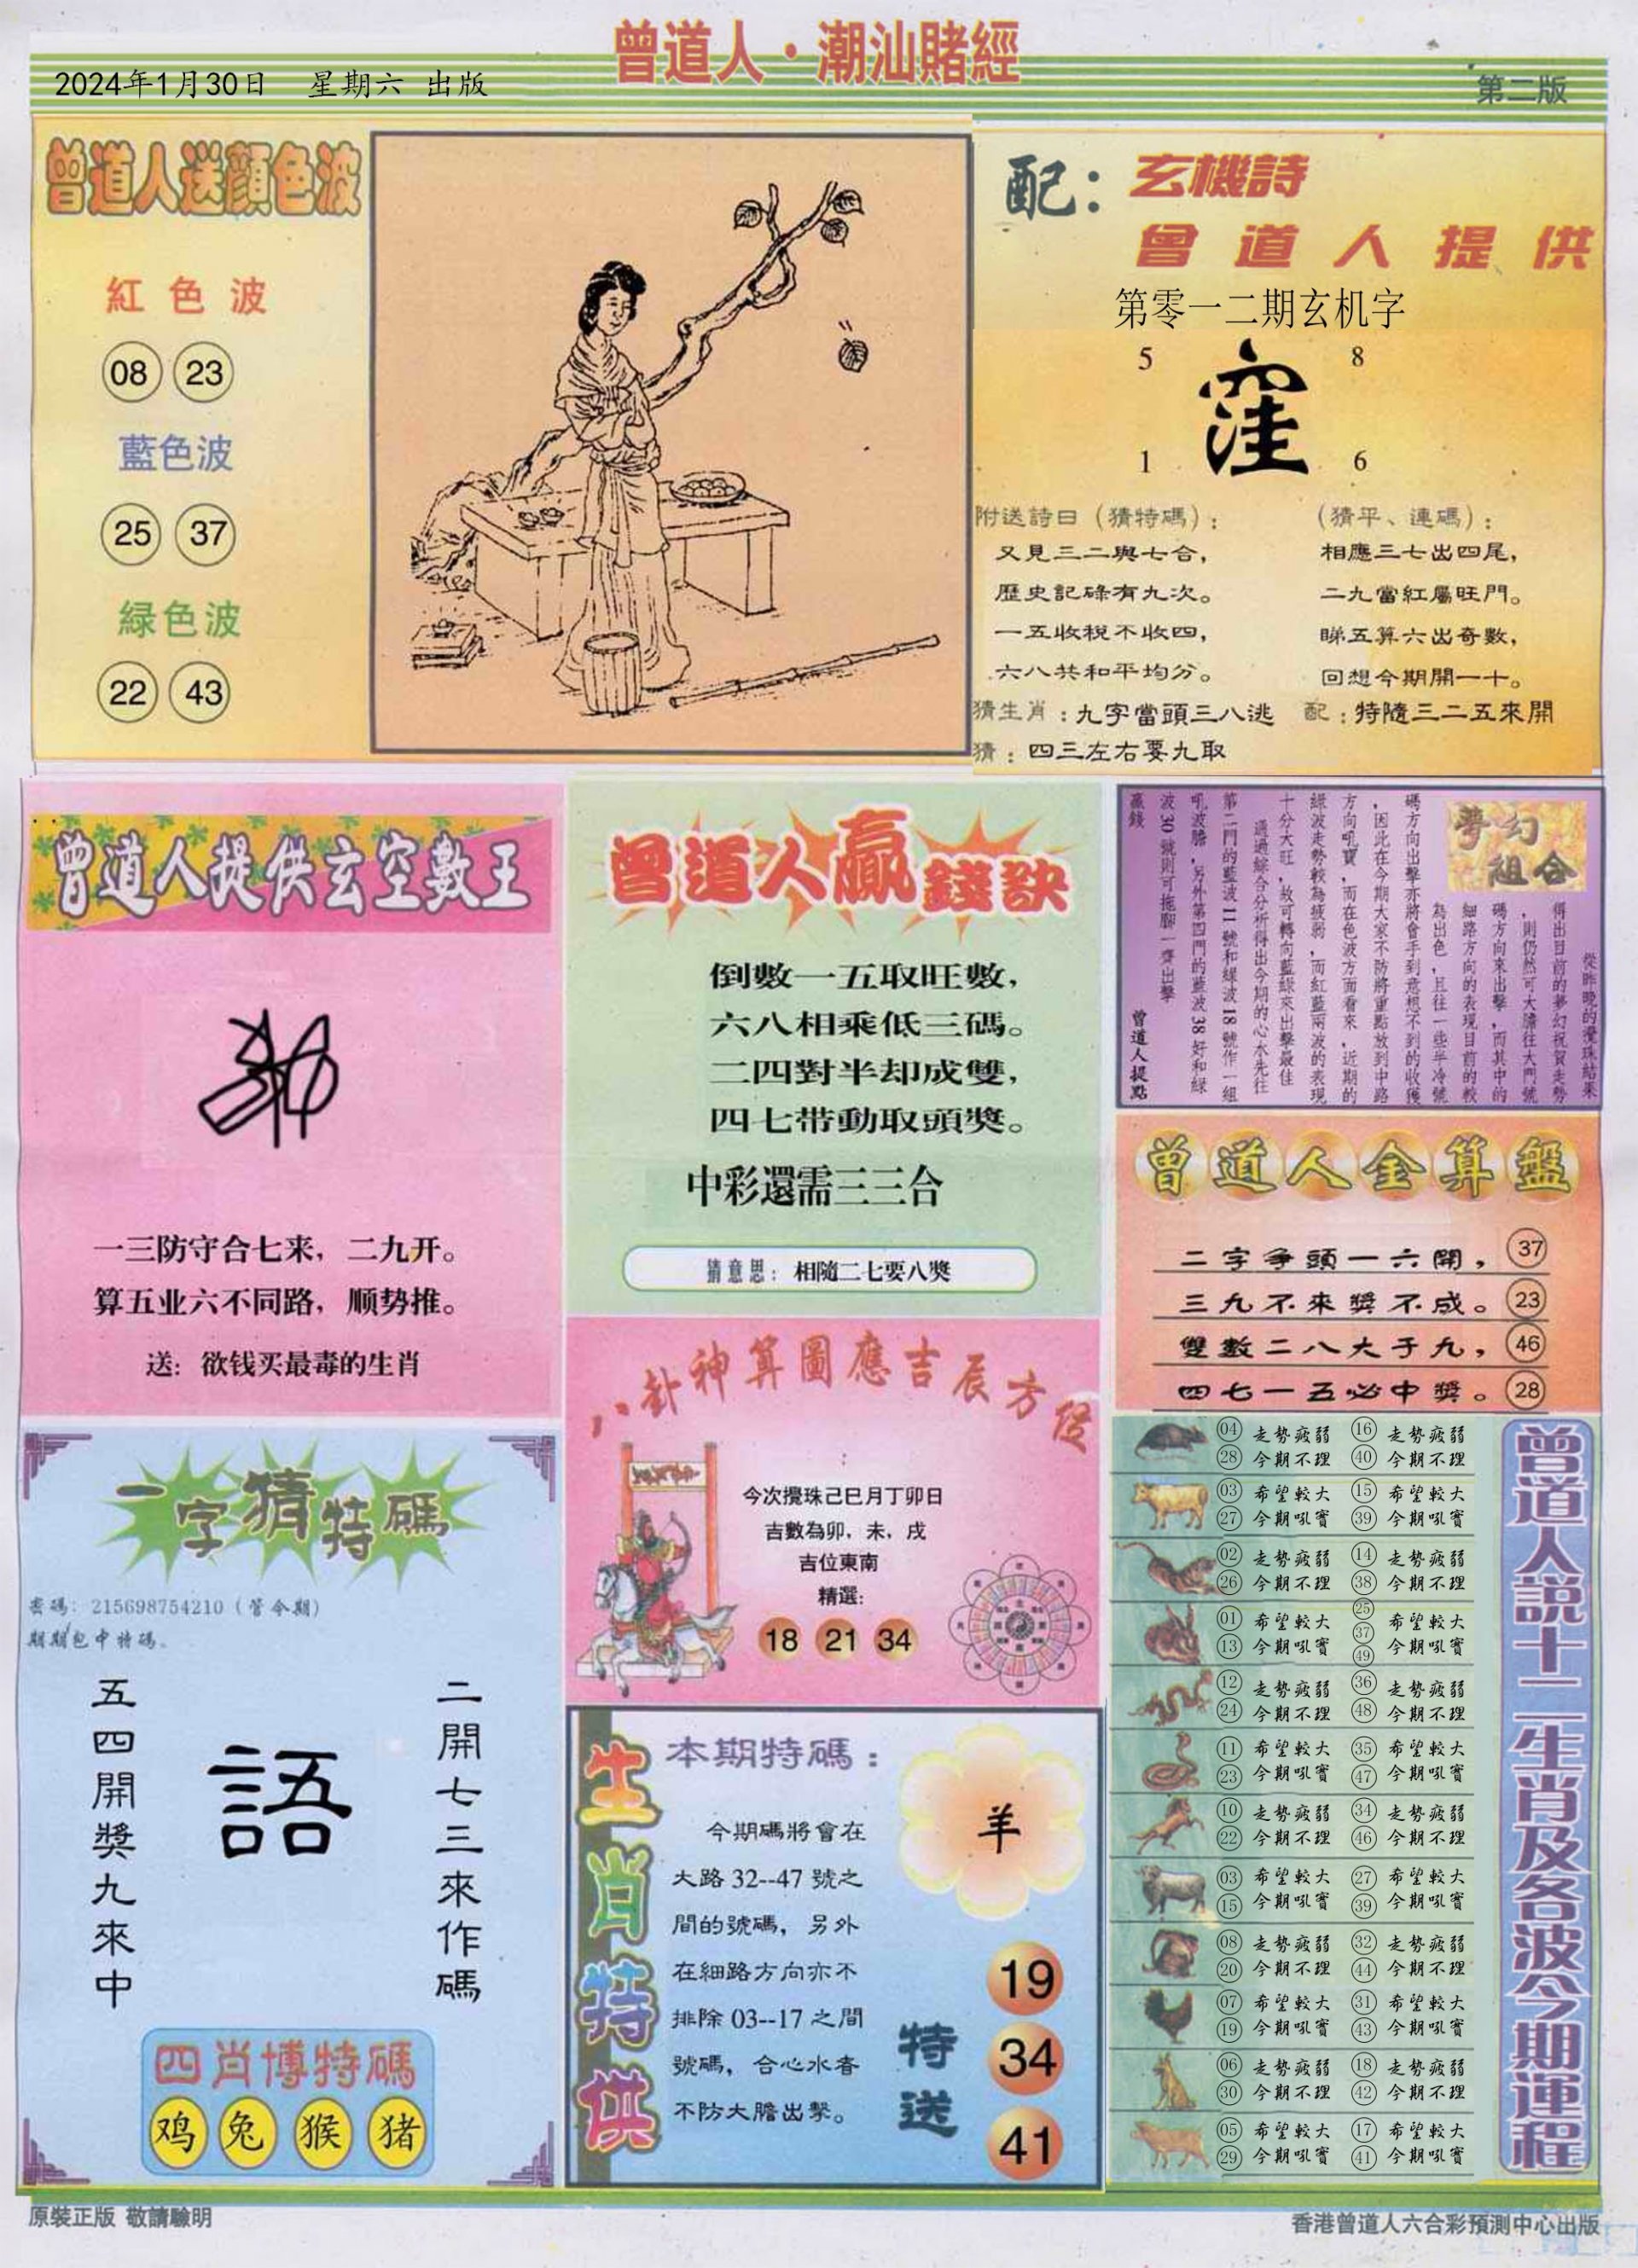 曾道人·潮汕賭經
2024年1月30日 星期六 出版
第二版
曾道人送顔色波
紅色波
08 23
藍色波
25 37
緑色波
22 43
配：玄機詩
曾道人提供
第零一二期玄机字
5 8
窪
1 6
附送詩曰（猜特碼）：
又見三二與七合，
歷史記碌有九次。
一五收稅不收四，
六八共和平均分。
（猜平、連碼）：
相應三七出四尾，
二九當紅屬旺門。
睇五算六出奇數，
回想今期開一十。
猜生肖：九字當頭三八逃
配：特隨三二五來開
猜：四三左右要九取
曾道人提供玄空數王
一三防守合七来，二九开。
算五业六不同路，顺势推。
送：欲钱买最毒的生肖
曾道人贏錢訣
倒數一五取旺數，
六八相乘低三碼。
二四對半却成雙，
四七带動取頭獎。
中彩還需三三合
猜意思：相隨二七要八獎
夢幻組合
從昨晚的攪珠結果
得出目前的夢幻祝賀走勢
，則仍然可大膽往大門號
碼方向來出擊，而其中的
細路方向的表現目前的較
為出色，且往一些半冷號
碼方向出擊亦將會手到意想不到的收獲
，因此在今期大家不防將重點放到中路
方向吼寶，而在色波方面看來，近期的
綠波走勢較為疲弱，而紅藍兩波的表現
十分大旺，故可轉向藍綠來出擊最佳
通過綜合分析得出今期的心水先往
第二門的藍波11號和綠波18號作一組
吼波膽，另外第四門的藍波38好和綠
波30號則可拖腳一齊出擊
贏錢
曾道人提點
曾道人金算盤
二字争頭一六開，37
三九不來獎不成。23
雙數二八大于九，46
四七一五必中獎。28
八卦神算圖應吉辰方位
今次攪珠己巳月丁卯日
吉數為卯，未，戌
吉位東南
精選：
18 21 34
一字猜特碼
密碼：215698754210（管今期）
期期包中特碼。
五四開獎九來中
語
二開七三來作碼
四肖博特碼
鸡 兔 猴 猪
生肖特供
本期特碼：
今期碼將會在
大路32--47號之
間的號碼，另外
在細路方向亦不
排除03--17之間
號碼，合心水者
不防大膽出擊。
羊
特送
19
34
41
曾道人說十二生肖及各波今期運程
04 走勢疲弱 16 走勢疲弱
28 今期不理 40 今期不理
03 希望較大 15 希望較大
27 今期吼寶 39 今期吼寶
02 走勢疲弱 14 走勢疲弱
26 今期不理 38 今期不理
01 希望較大 25 37 希望較大
13 今期吼寶 49 今期吼寶
12 走勢疲弱 36 走勢疲弱
24 今期不理 48 今期不理
11 希望較大 35 希望較大
23 今期吼寶 47 今期吼寶
10 走勢疲弱 34 走勢疲弱
22 今期不理 46 今期不理
03 希望較大 27 希望較大
15 今期吼寶 39 今期吼寶
08 走勢疲弱 32 走勢疲弱
20 今期不理 44 今期不理
07 希望較大 31 希望較大
19 今期吼寶 43 今期吼寶
06 走勢疲弱 18 走勢疲弱
30 今期不理 42 今期不理
05 希望較大 17 希望較大
29 今期吼寶 41 今期吼寶
原裝正版 敬請驗明
香港曾道人六合彩預測中心出版